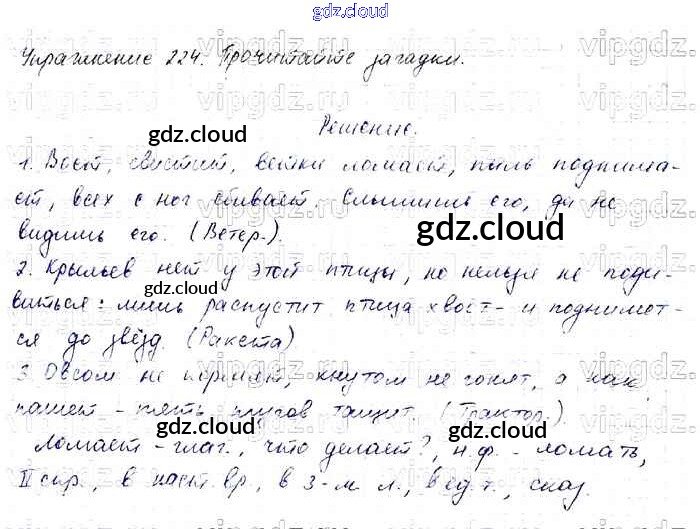 gdz.cloud
Упражнение 224. Прочитайте загадки.
Решение.
gdz.cloud
1. Воет, свистит, ветки ломает, пыль поднима-
ет, всех с ног сбивает. Слышишь его, да не
gdz.cloud
видишь его. (Ветер.).
gdz.cloud
2. Крыльев нет у этой птицы, но нельзя не поди-
виться: лишь распустит птица хвост - и поднимет-
gdz.cloud
ся до звёзд. (Ракета)
3. Овсом не кормят, кнутом не гонят, а как
пашет - пять плугов тащит. (Трактор.).
gdz.cloud
gdz.cloud
ломает - глаг., что делает?, н.ф. - ломать,
II спр., в наст. вр., в 3-м л., в ед. ч., сказ.